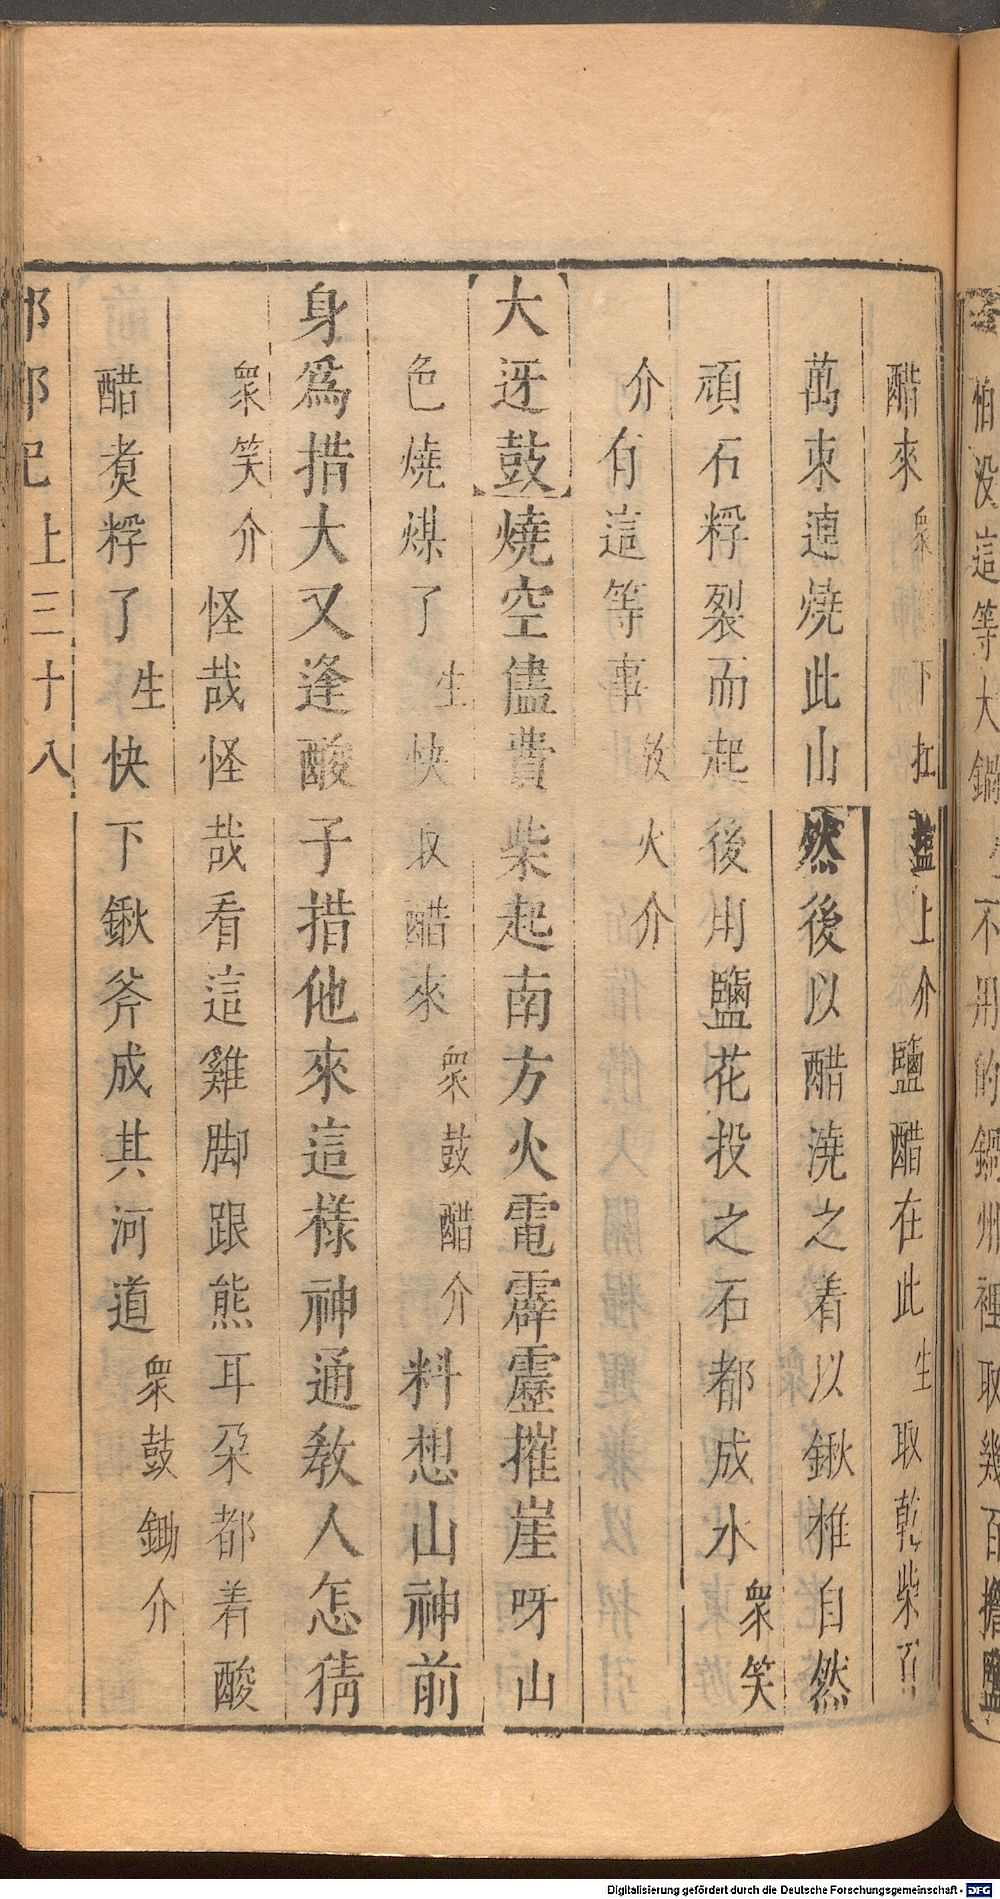 怕没這等大鍋 不用的鍋州裡取幾百擔鹽
醋來衆 下扛鹽上介鹽醋在此生取乾柴
萬束連燒此山然後以醋澆之着以鍬椎自然
頑石粰裂而起後用鹽花投之石都成水衆笑
介有這等事放火介
【大迓鼓】燒空儘費柴起南方火電霹靂摧崖呀山
色燒煤了生快取醋來衆鼓醋介料想山神前
身爲措大又逢酸子措他來這樣神通教人怎猜
衆笑介怪哉怪哉看這雞脚跟熊耳朶都着酸
醋煑粰了生快下鍬斧成其河道衆鼓鋤介
邯鄲記 上 三十八
Digitalisierung gefördert durch die Deutsche Forschungsgemeinschaft - DFG